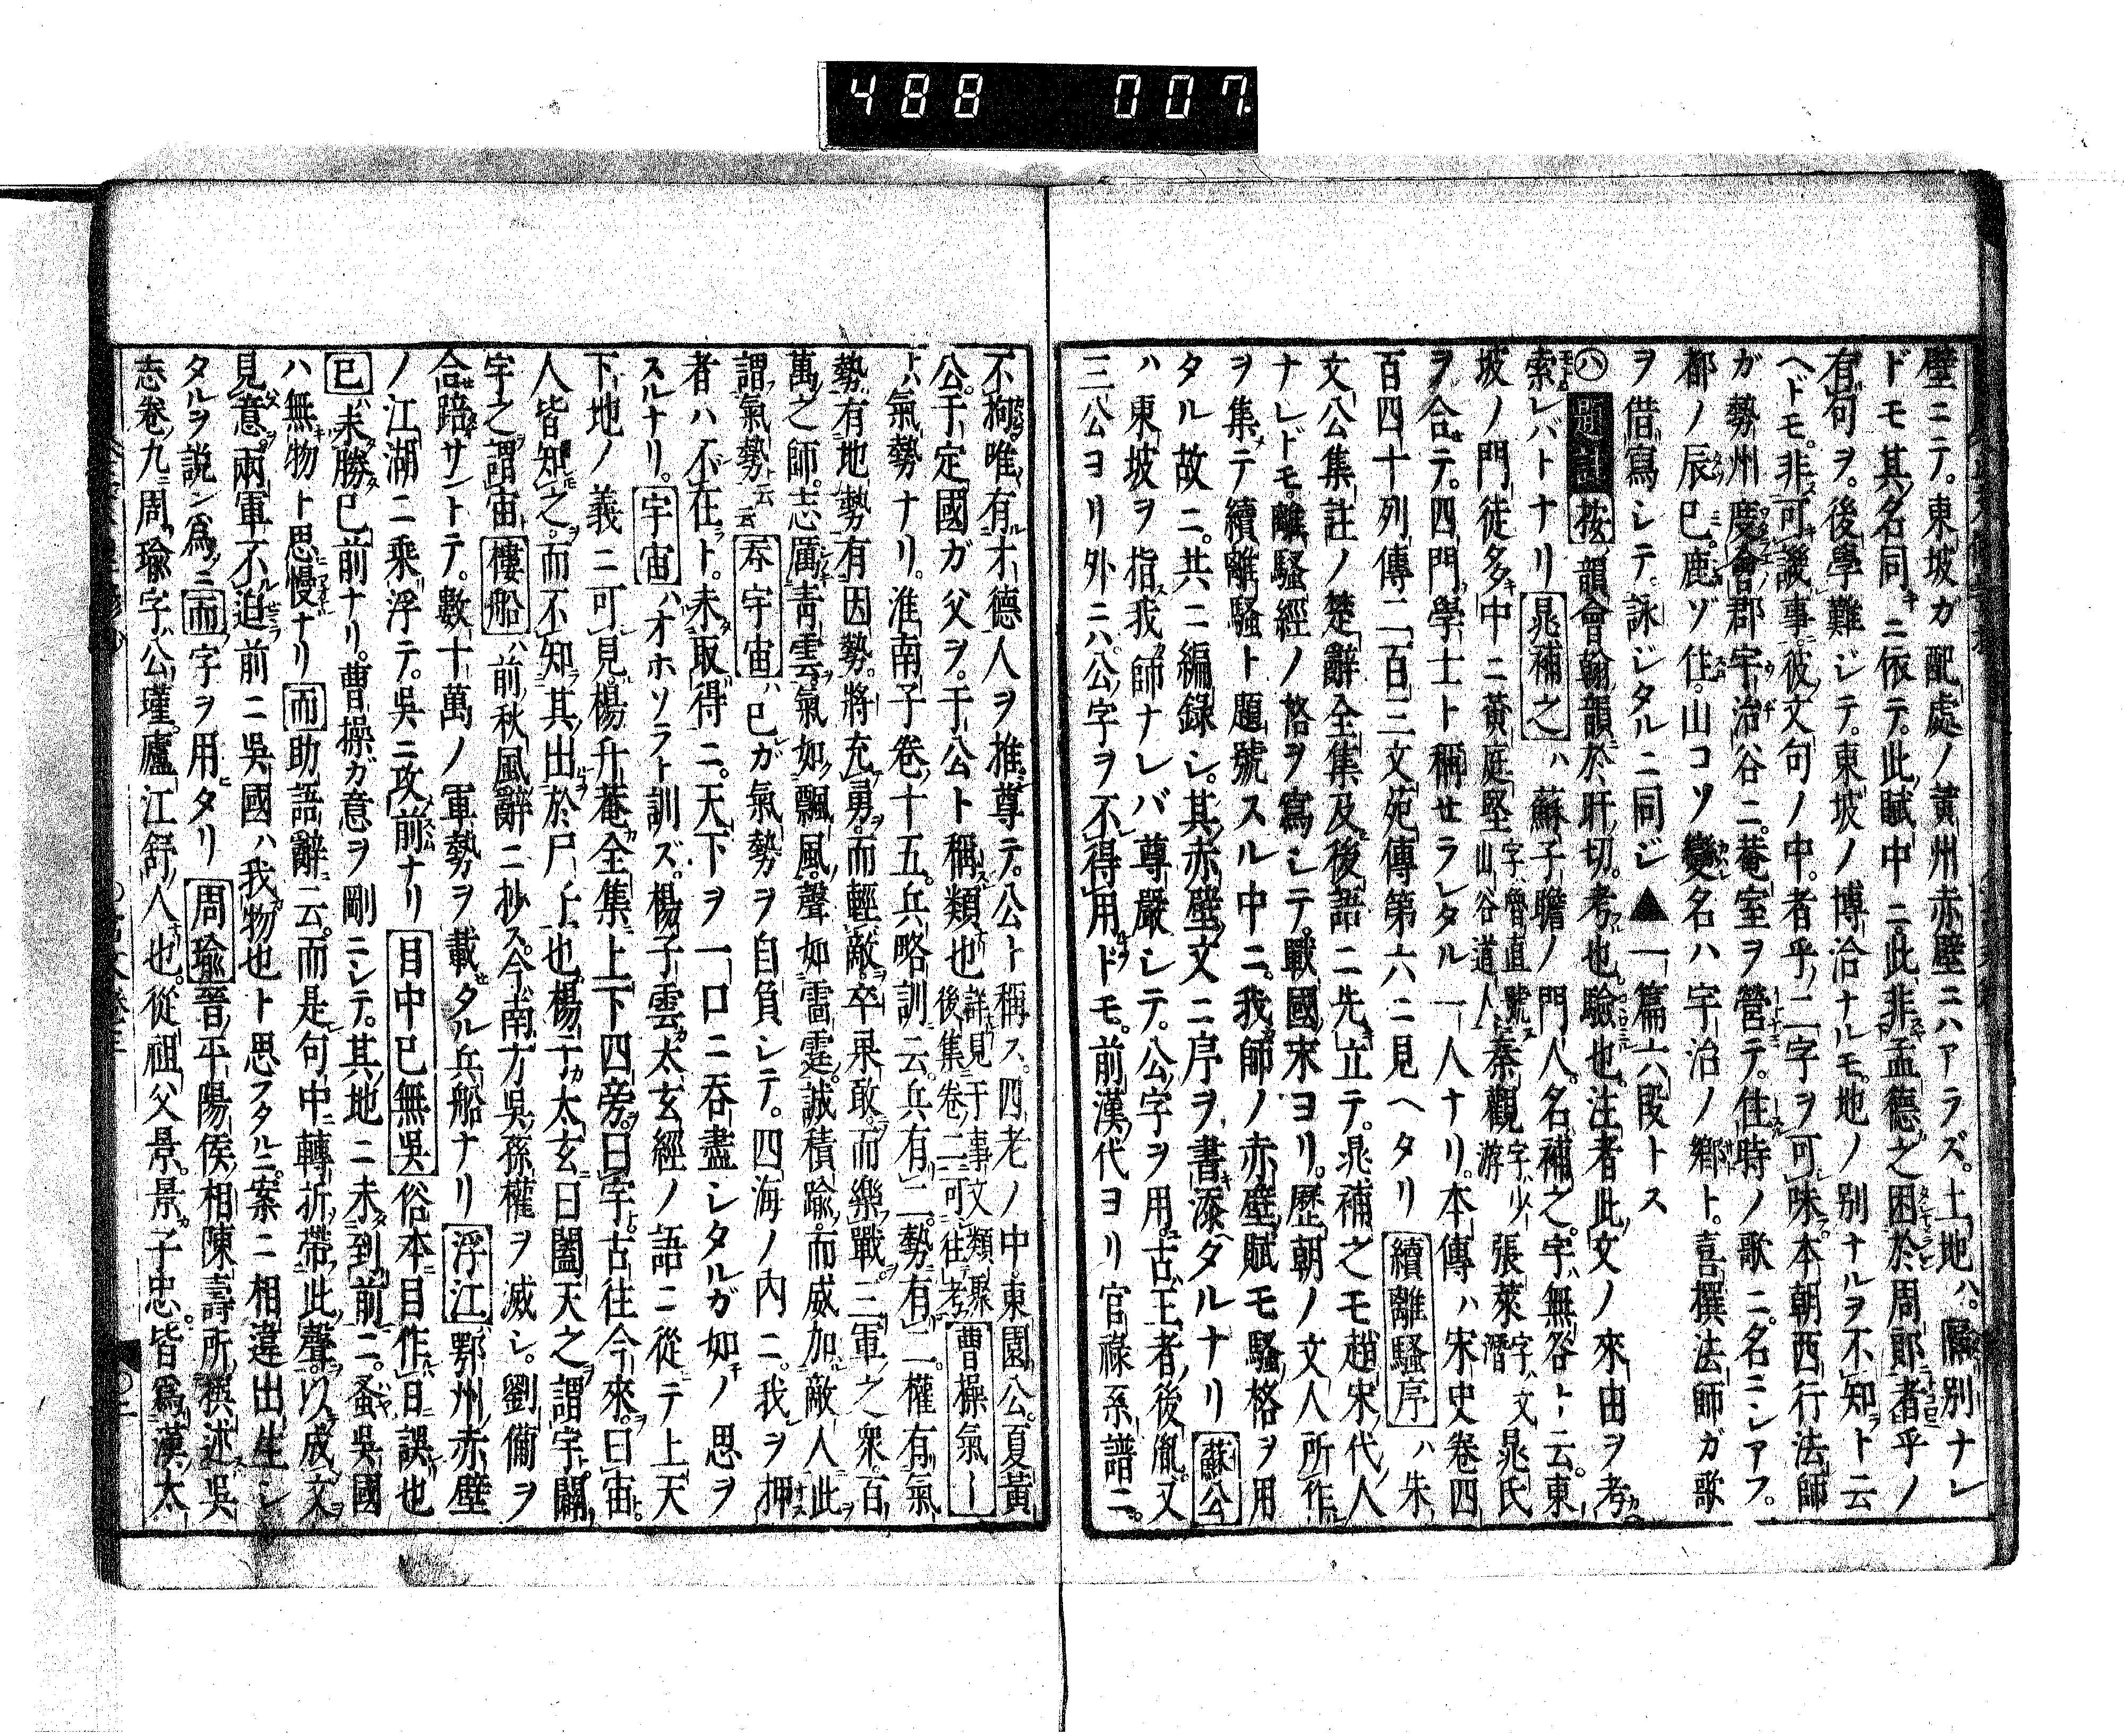 488 007
壁ニテ。東坡ガ配處ノ黃州赤壁ニハアラズ。土地ハ。隔別ナレ
ドモ其名同キニ依テ。此賦中ニ此非孟德之困於周郎者乎ノ
有句ヲ。後學難ジテ。東坡ノ博洽ナルモ。地ノ別ナルヲ不知ト云
ヘドモ。非可譏事彼文句ノ中。者乎ノ二字ヲ可味本朝西行法師
ガ勢州度會郡宇治谷ニ。菴室ヲ營テ。住時ノ歌ニ。名ニシアフ。
都ノ辰巳。鹿ゾ住。山コソ變名ハ宇治ノ鄕ト。喜撰法師ガ歌
ヲ借寫シテ。詠ジタルニ同ジ▲一篇六段トス
㋩題註 按韻會翰韻於旰切。考也。驗也。注者此文ノ來由ヲ考
索レバトナリ 晁補之ハ蘇子瞻ノ門人。名補之。字無咎ト云。東
坡ノ門徒多中ニ黃庭堅字魯直號山谷道人秦觀字少游張萊字文潛晁氏
ヲ合テ。四門學士ト稱セラレタル一人ナリ。本傳ハ宋史卷四
百四十列傳二百三文苑傳第六ニ見ヘタリ 續離騷序ハ朱
文公集註ノ楚辭全集及後語ニ先立テ。晁補之モ趙宋代人
ナレドモ。離騷經ノ格ヲ寫シテ。戰國宋ヨリ。歷朝ノ文人所作
ヲ集テ續離騷ト題號スル中ニ。我師ノ赤壁賦モ騷格ヲ用
タル故ニ。共ニ編録シ。其赤壁文ニ序ヲ書添タルナリ 蘇公
ハ東坡ヲ指我師ナレバ尊嚴シテ。公字ヲ用。古王者後胤又
三公ヨリ外ニハ。公字ヲ不得用ドモ。前漢代ヨリ官祿系譜ニ。
不拘唯有才德人ヲ推尊テ。公ト稱ス。四老ノ中。東園公。夏黃
公。于定國ガ父ヲ。于公ト稱類也詳見于事文類聚後集卷二可往考 曹操氣ー
ハ氣勢ナリ。淮南子卷十五。兵略訓云。兵有二勢有二權有氣
勢有地勢有因勢。將充勇而輕敵。卒果敢而樂戰三軍之衆百
萬之師。志厲靑雲氣如飄風。聲如雷霆。誠積踰而威加敵人此
謂氣勢云云 吞宇宙ハ已ガ氣勢ヲ自負シテ。四海ノ内ニ。我ヲ押
者ハ不在ト。未取得ニ。天下ヲ一口ニ吞盡シタルガ如ノ思ヲ
スルナリ。宇宙ハオホソラト訓ズ。楊子雲太玄經ノ語ニ從テ上天
下地ノ義ニ可見。楊升菴全集上下四旁。曰宇。古往今來。曰宙。
人皆知之。而不知其出於尸上也。楊子太玄曰闔天之謂宇。闢
宇之謂宙 樓船ハ前秋風辭ニ抄ス。今南方吳孫權ヲ滅シ。劉備ヲ
合踣サントテ。數十萬ノ軍勢ヲ載タル兵船ナリ 浮江鄂州赤壁
ノ江湖ニ乘浮テ。吳ニ攻前ナリ 目中已無吳 俗本目作日誤也
已ハ未勝已前ナリ。曹操ガ意ヲ剛ニシテ。其地ニ未到前ニ。蚤吳國
ハ無物ト思慢ナリ 而助語辭云。而是句中轉折帶此聲。以成文
見意。兩軍不迫前ニ吳國ハ我物也ト思フタルニ。案ニ相違出生シ
タルヲ說ン爲ニ而字ヲ用タリ 周瑜 晉平陽侯相陳壽所撰述吳
志卷九周瑜字公瑾。廬江舒人也。從祖父景。景子忠。皆爲漢太